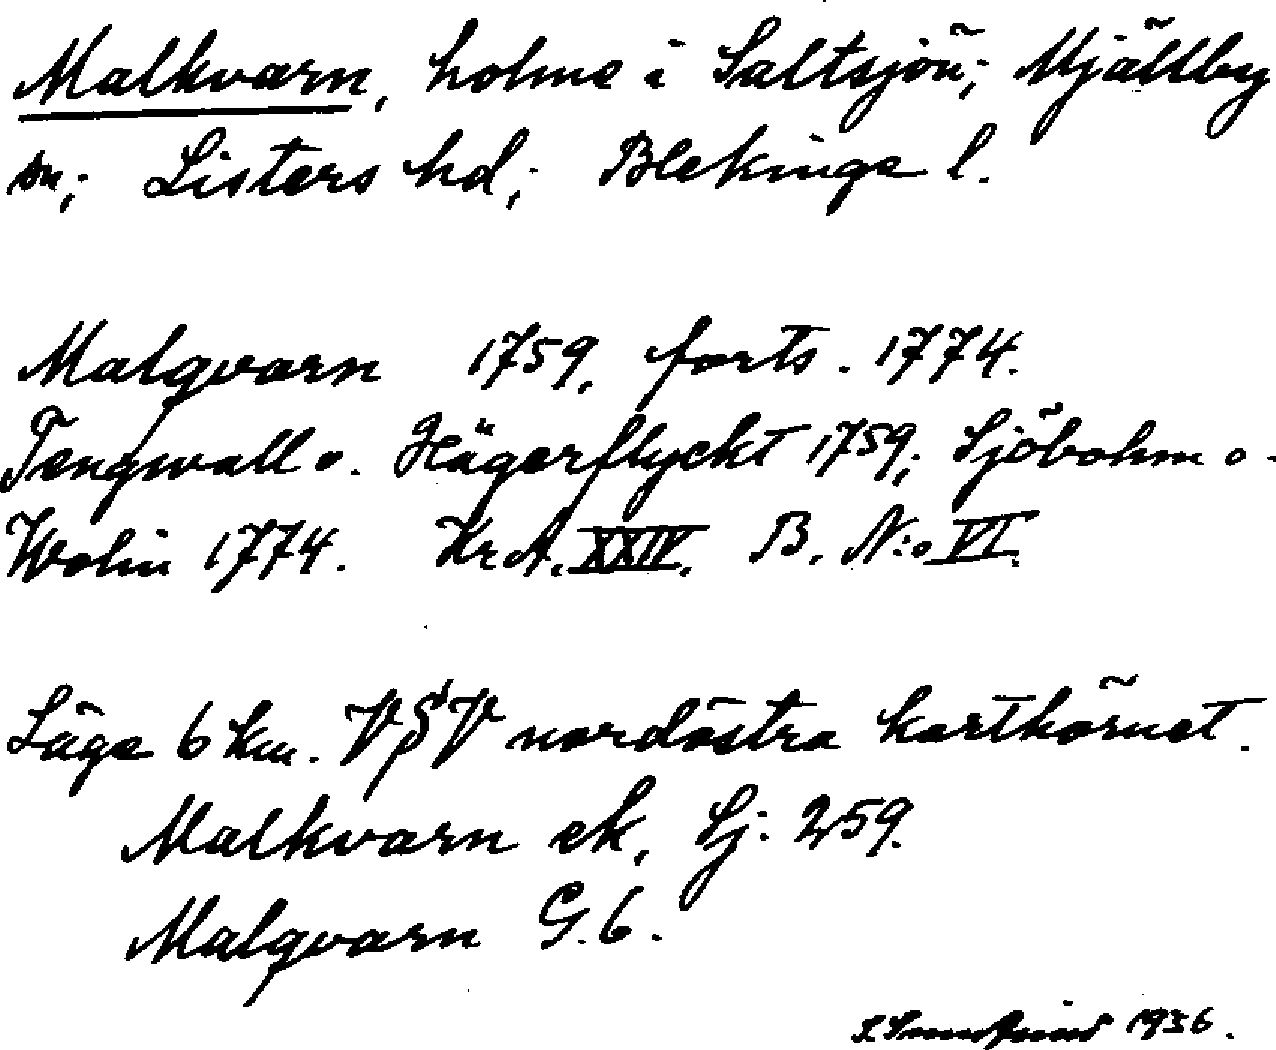 Malkvarn, holme i Saltsjön; Mjällby
sn; Listers hd; Blekinge l.
Malqvarn 1759, forts. 1774.
Tengwall o. Hägerflyckt 1759; Sjöbohm o.
Wolin 1774. Kr A. XXIV. B. N:o VI.
Läge 6 km. VSV nordöstra karthörnet.
Malkvarn ek, Sj: 259.
Malqvarn G. 6.
1936.